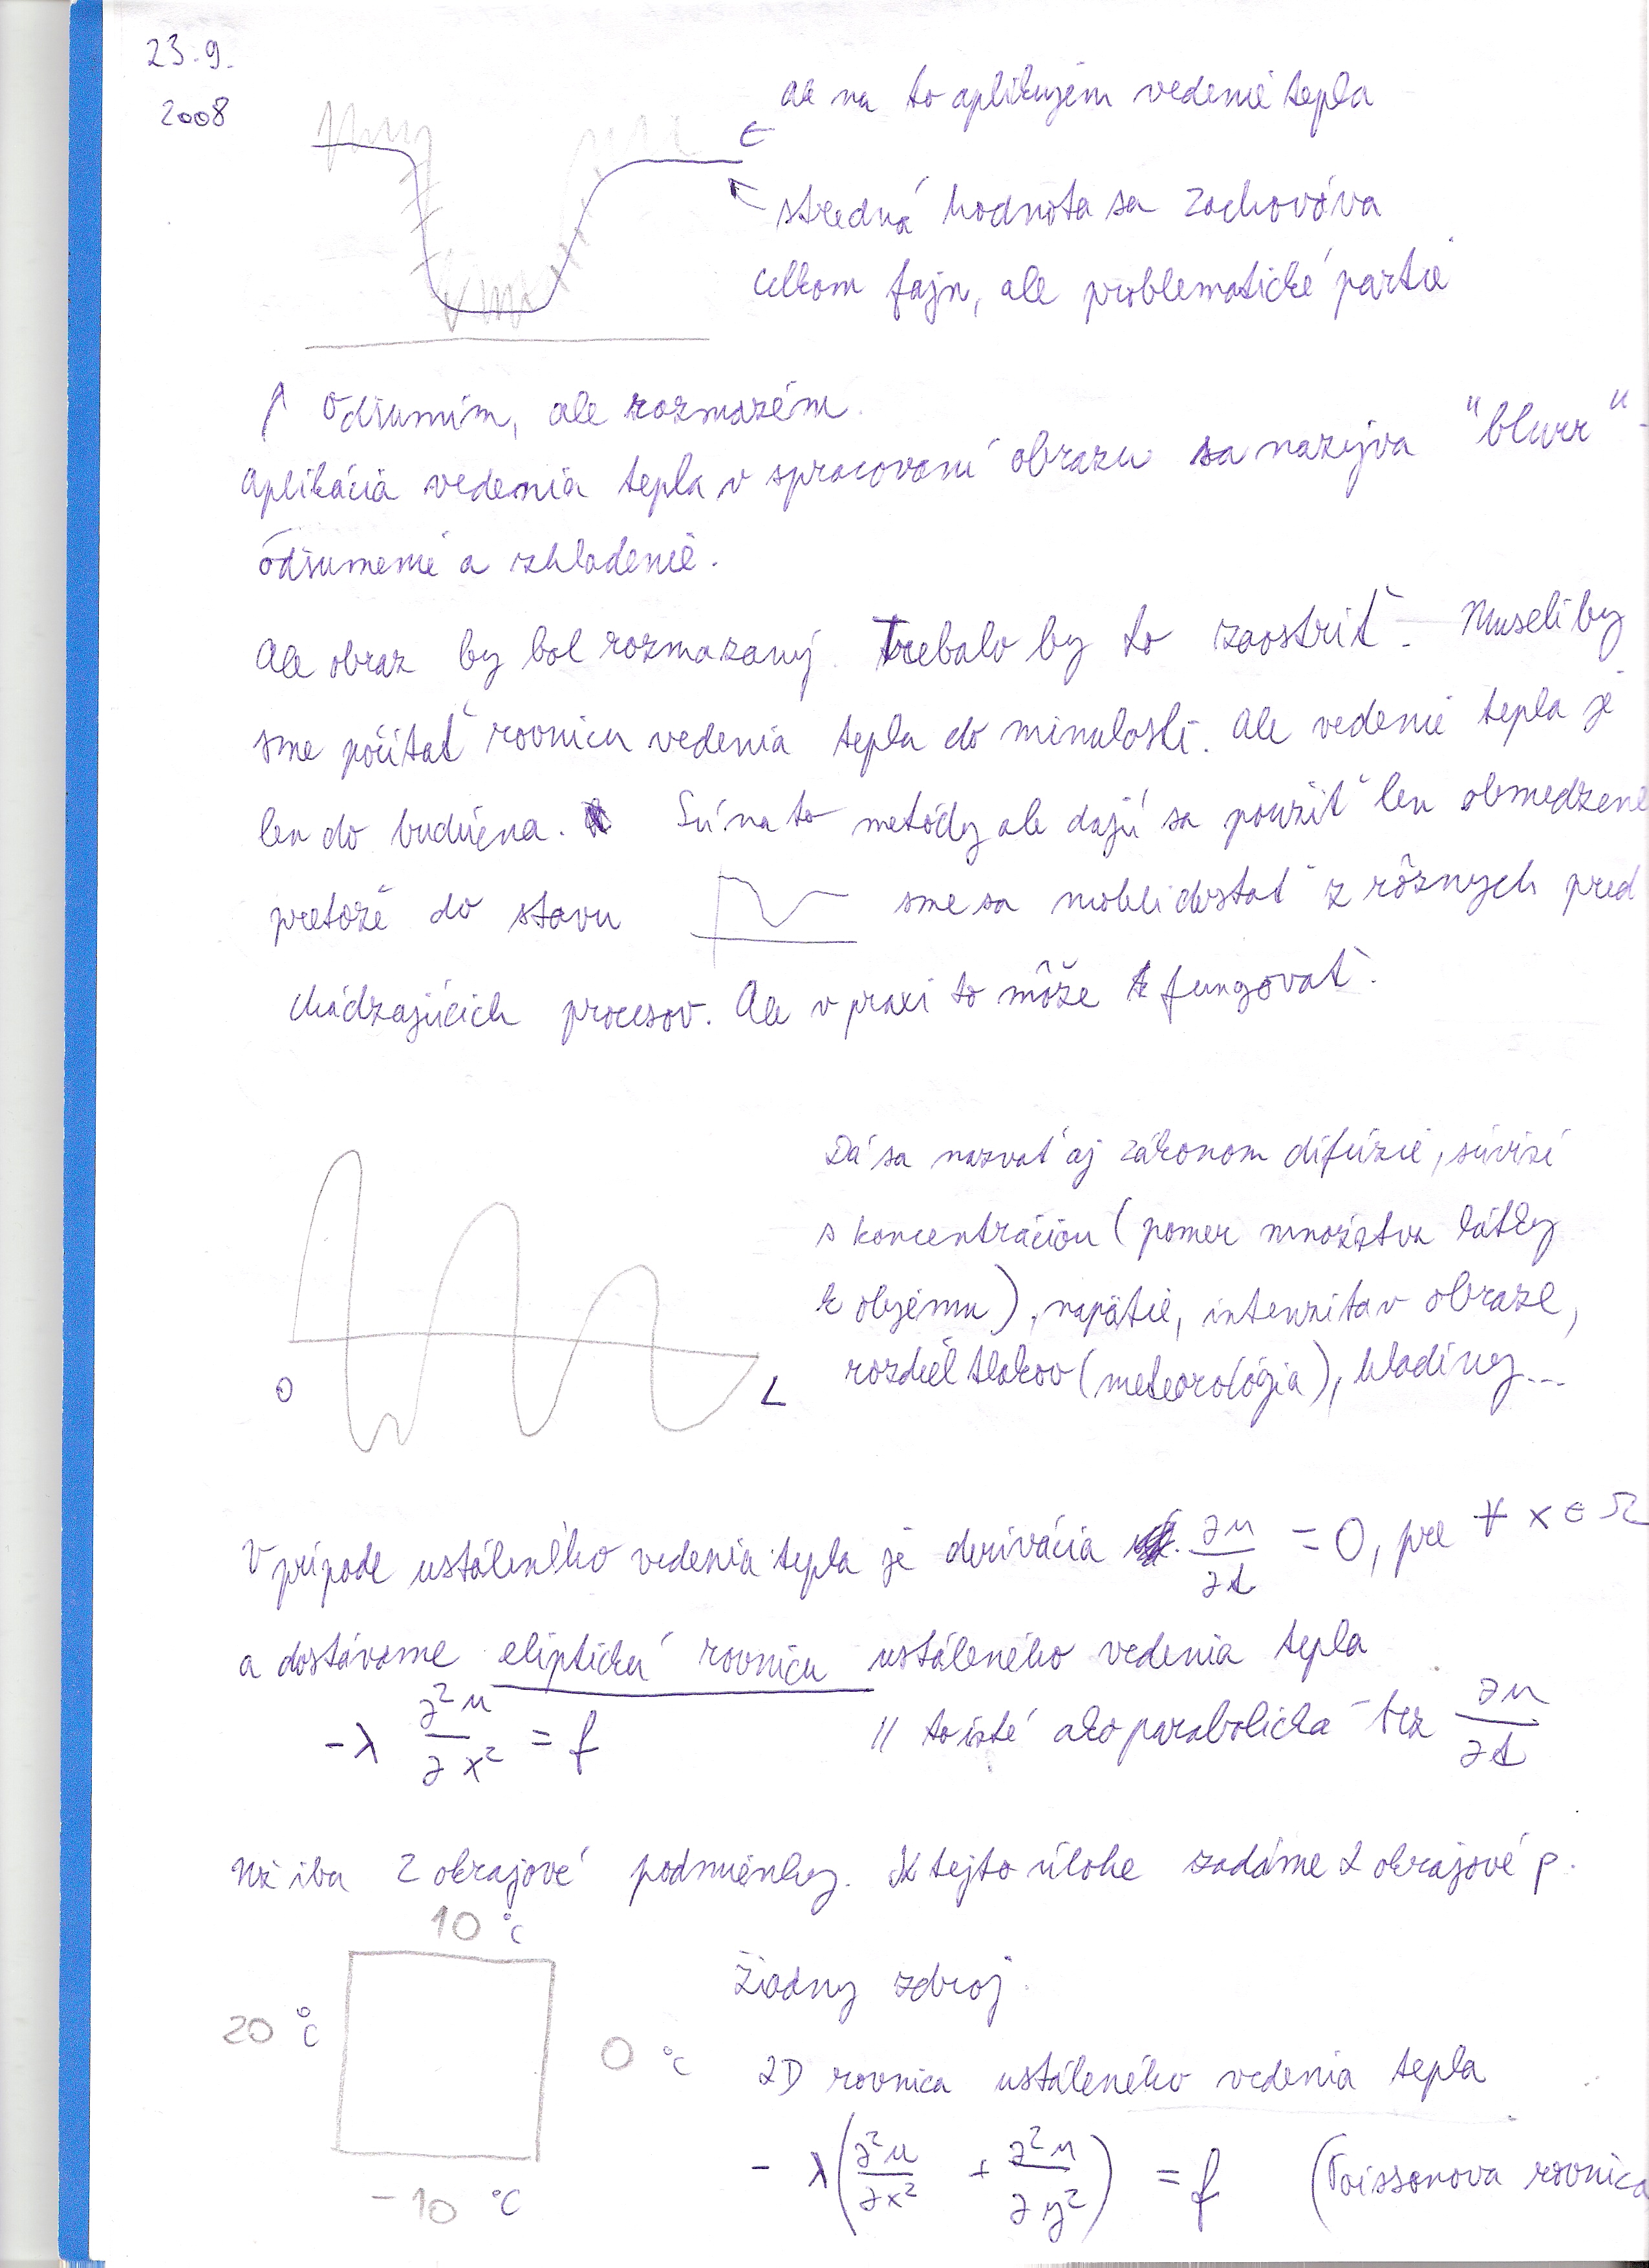 23.9.
2008
ak na to aplikujem vedenie tepla
stredná hodnota sa zachováva
celkom fajn, ale problematické partie
↑ Odšumím, ale rozmažem.
Aplikácia vedenia tepla v spracovaní obrazu sa nazýva "blurr" -
odšumenie a zhladenie.
Ale obraz by bol rozmazaný. Trebalo by to zaostriť. Museli by
sme počítať rovnicu vedenia tepla do minulosti. Ale vedenie tepla je
len do budúcna. Sú na to metódy ale dajú sa použiť len obmedzene
pretože do stavu sme sa mohli dostať z rôznych pred
chádzajúcich procesov. Ale v praxi to môže fungovať.
Dá sa nazvať aj zákonom difúzie, súvisí
s koncentráciou (pomer množstva látky
k objemu), napätie, intenzita v obraze,
rozdiel tlakov (meteorológia), hladiny...
0 L
V prípade ustáleného vedenia tepla je derivácia ∂u/∂t = 0, pre ∀ x ∈ Ω
a dostávame eliptickú rovnicu ustáleného vedenia tepla
-λ ∂²u/∂x² = f // to isté ako parabolická bez ∂u/∂t
Už iba 2 okrajové podmienky. K tejto úlohe zadáme 2 okrajové p.
10 °C
Žiadny zdroj.
20 °C 0 °C
2D rovnica ustáleného vedenia tepla
- λ(∂²u/∂x² + ∂²u/∂y²) = f (Poissonova rovnica
-10 °C